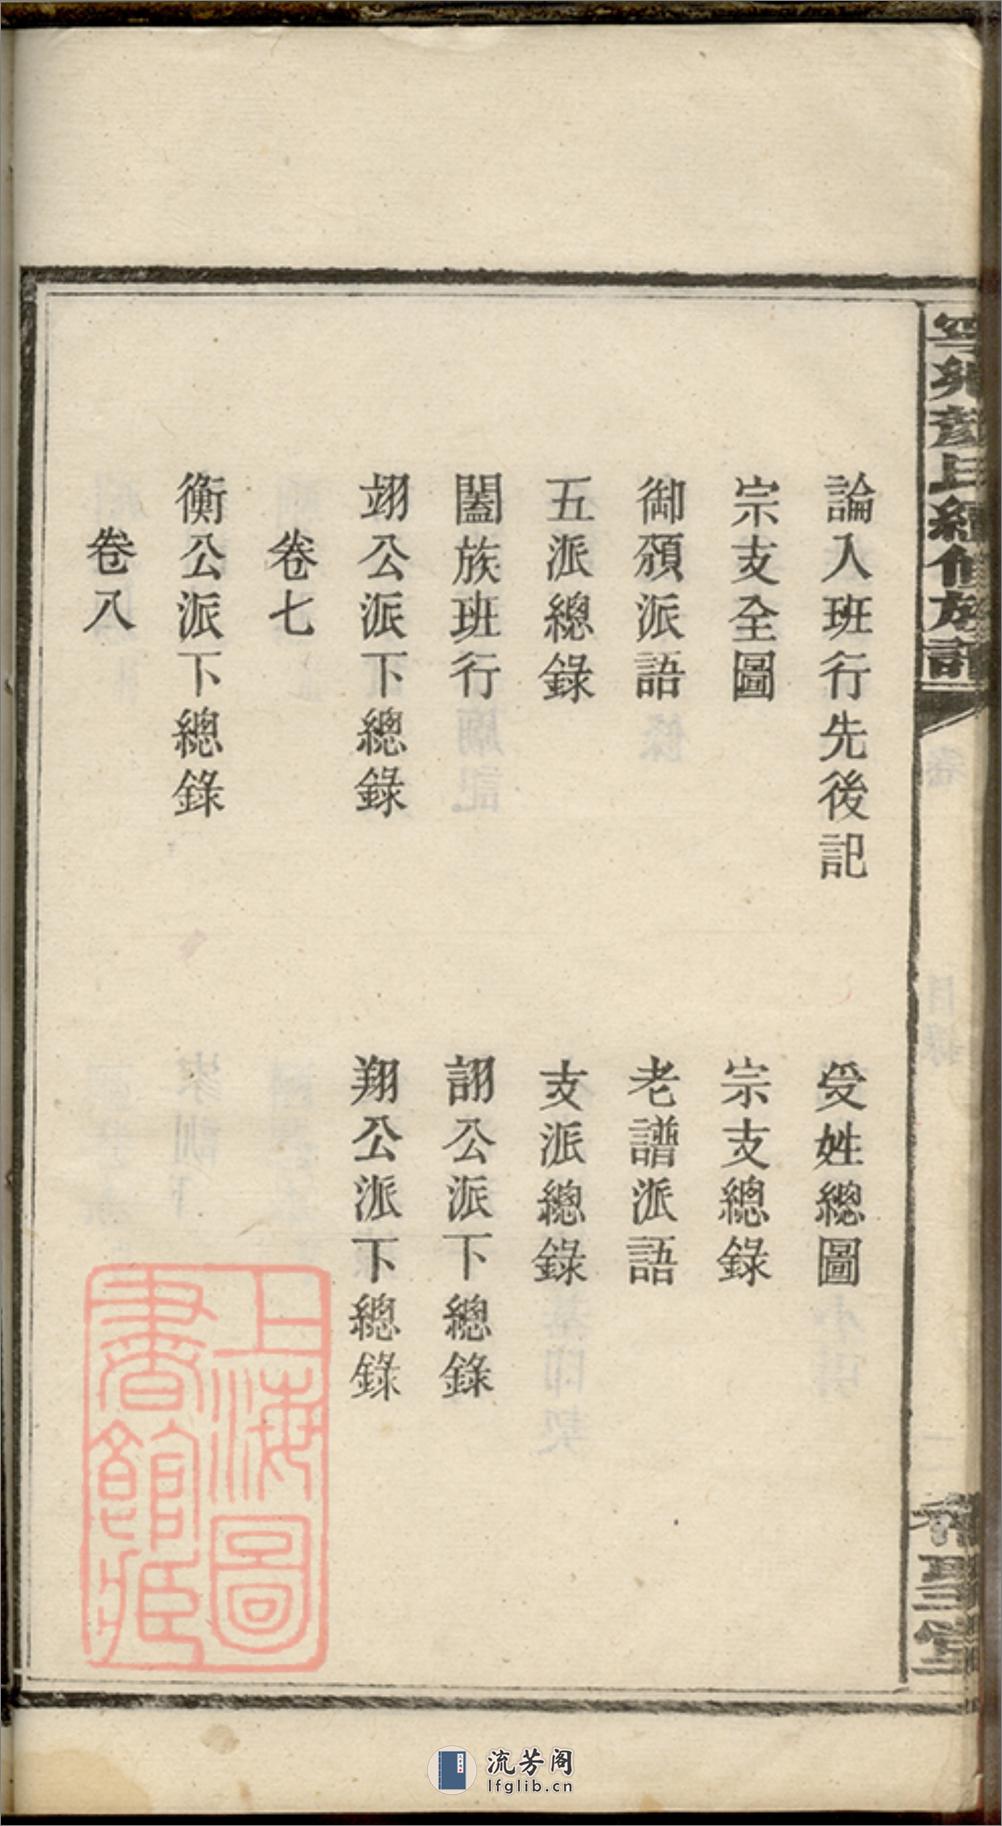 論入班行先後記
受姓總圖
宗支全圖
宗支總錄
御頒派語
老譜派語
五派總錄
支派總錄
闔族班行
詡公派下總錄
翊公派下總錄
翔公派下總錄
卷七
衡公派下總錄
卷八
上海圖
書館藏
流芳阁
lfglib.cn